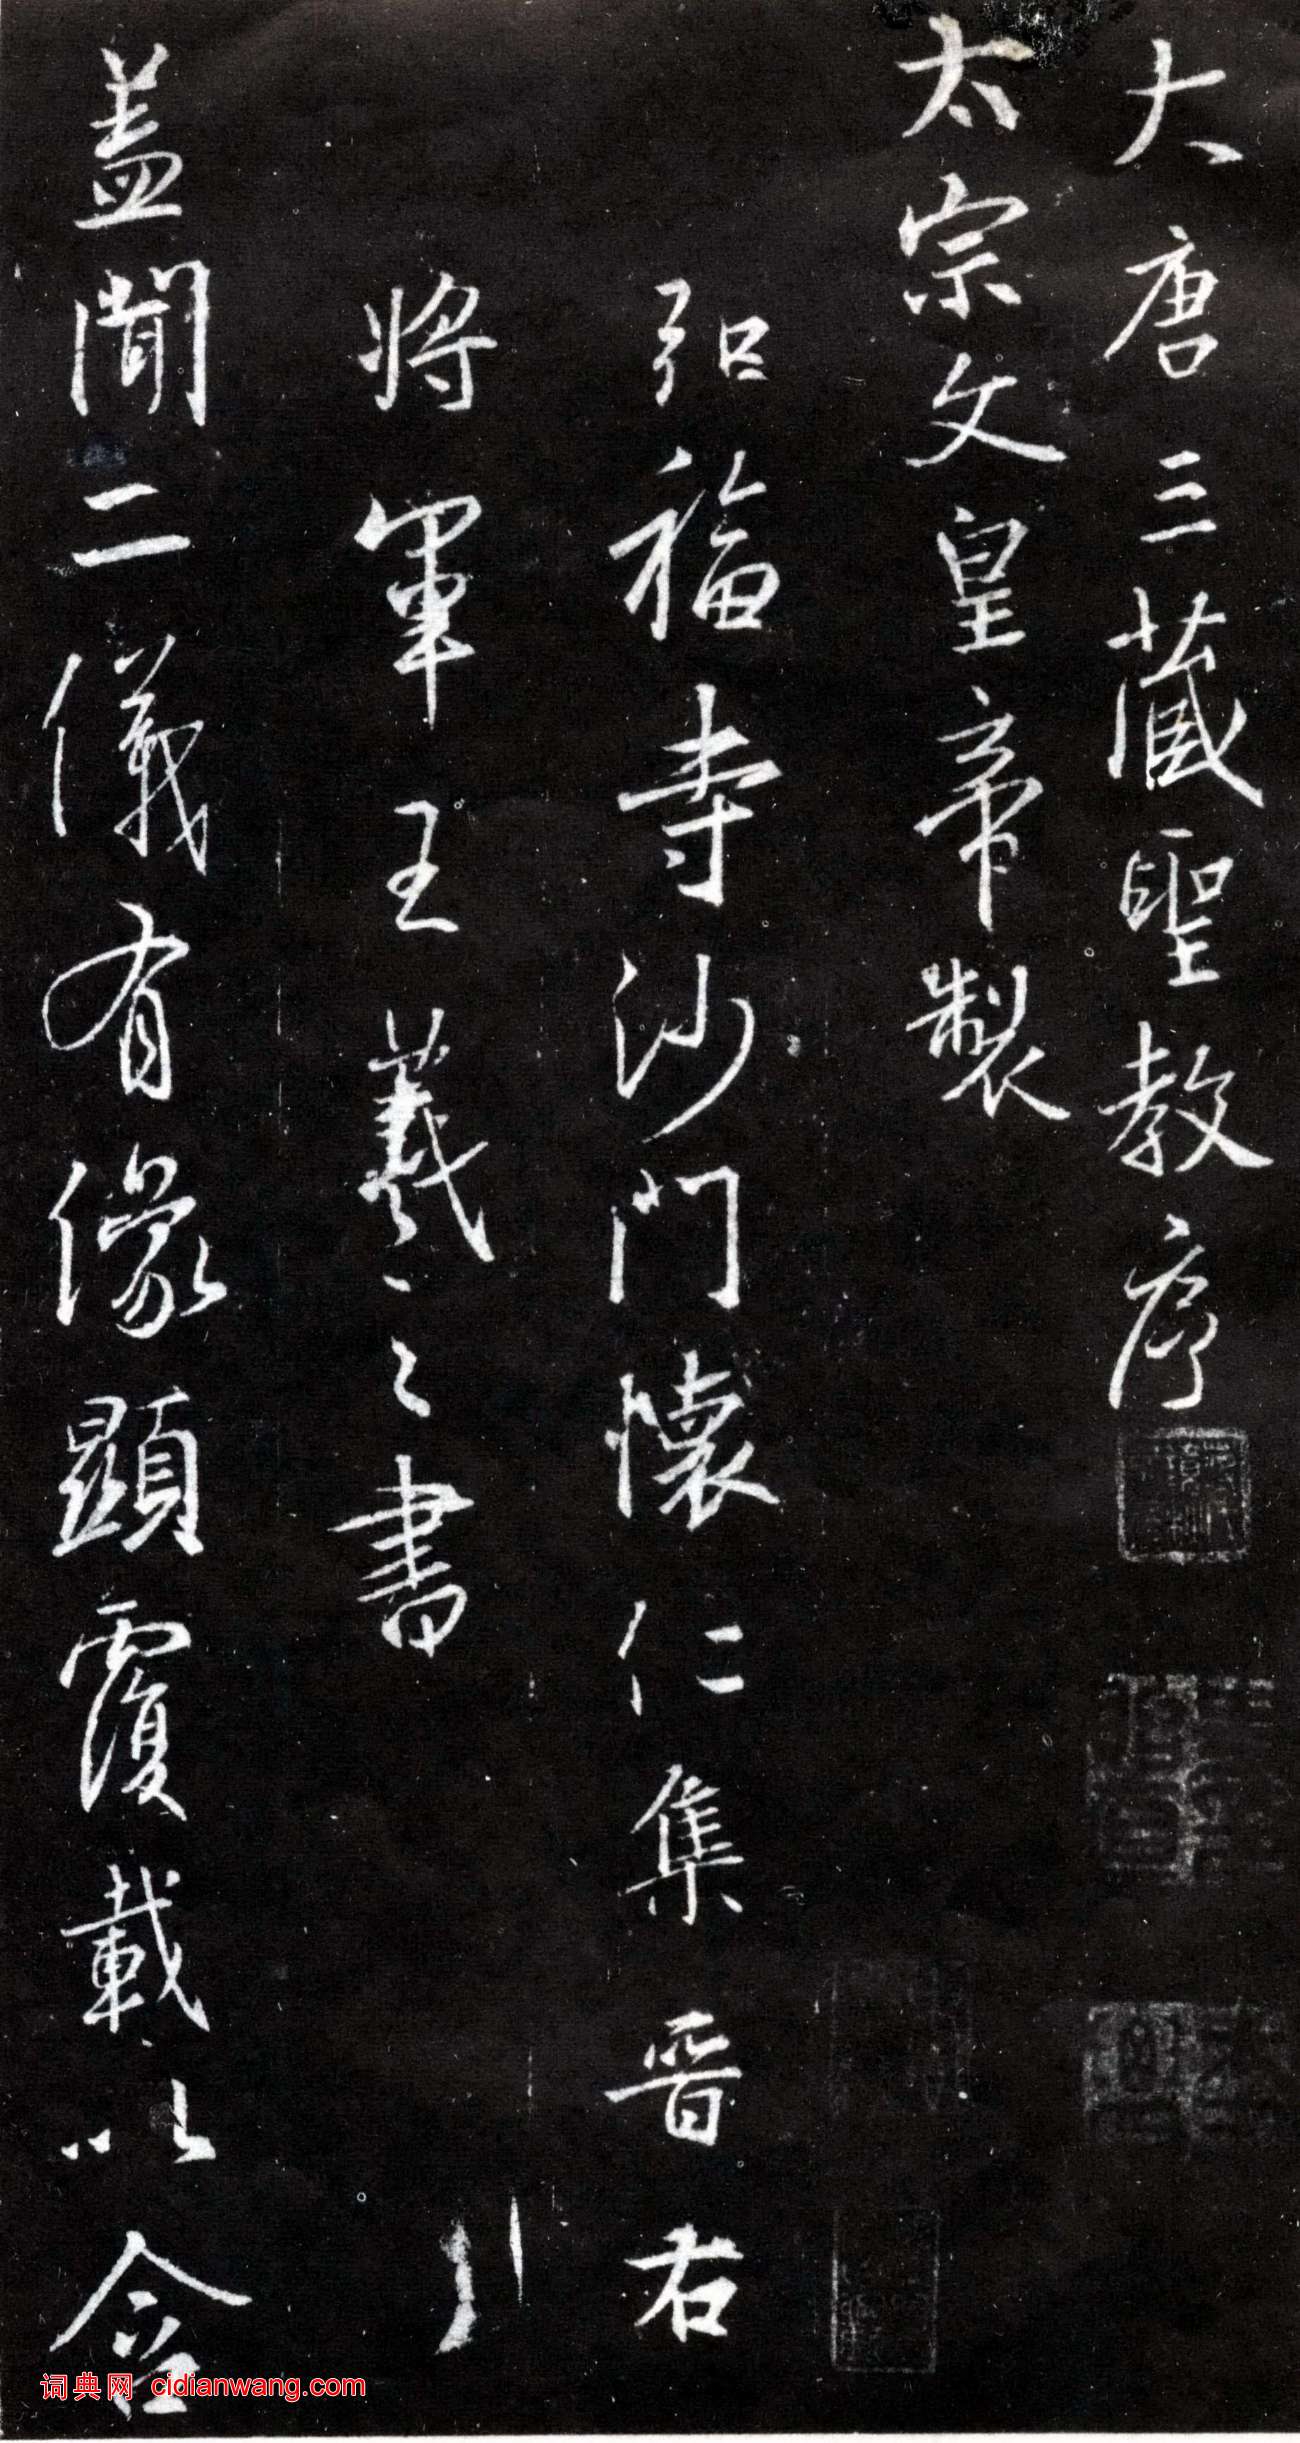 大唐三藏聖教序
太宗文皇帝製
弘福寺沙門懷仁集晉右
將軍王羲之書
蓋聞二儀有像顯覆載以含
词典网 cidianwang.com